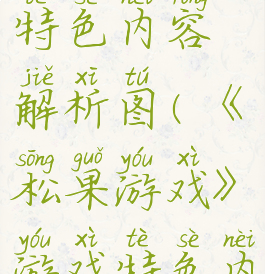 tè sè nèi róng
特色内容
jiě xī tú
解析图(《
sōng guǒ yóu xì
松果游戏》
yóu xì tè sè nèi
游戏特色内